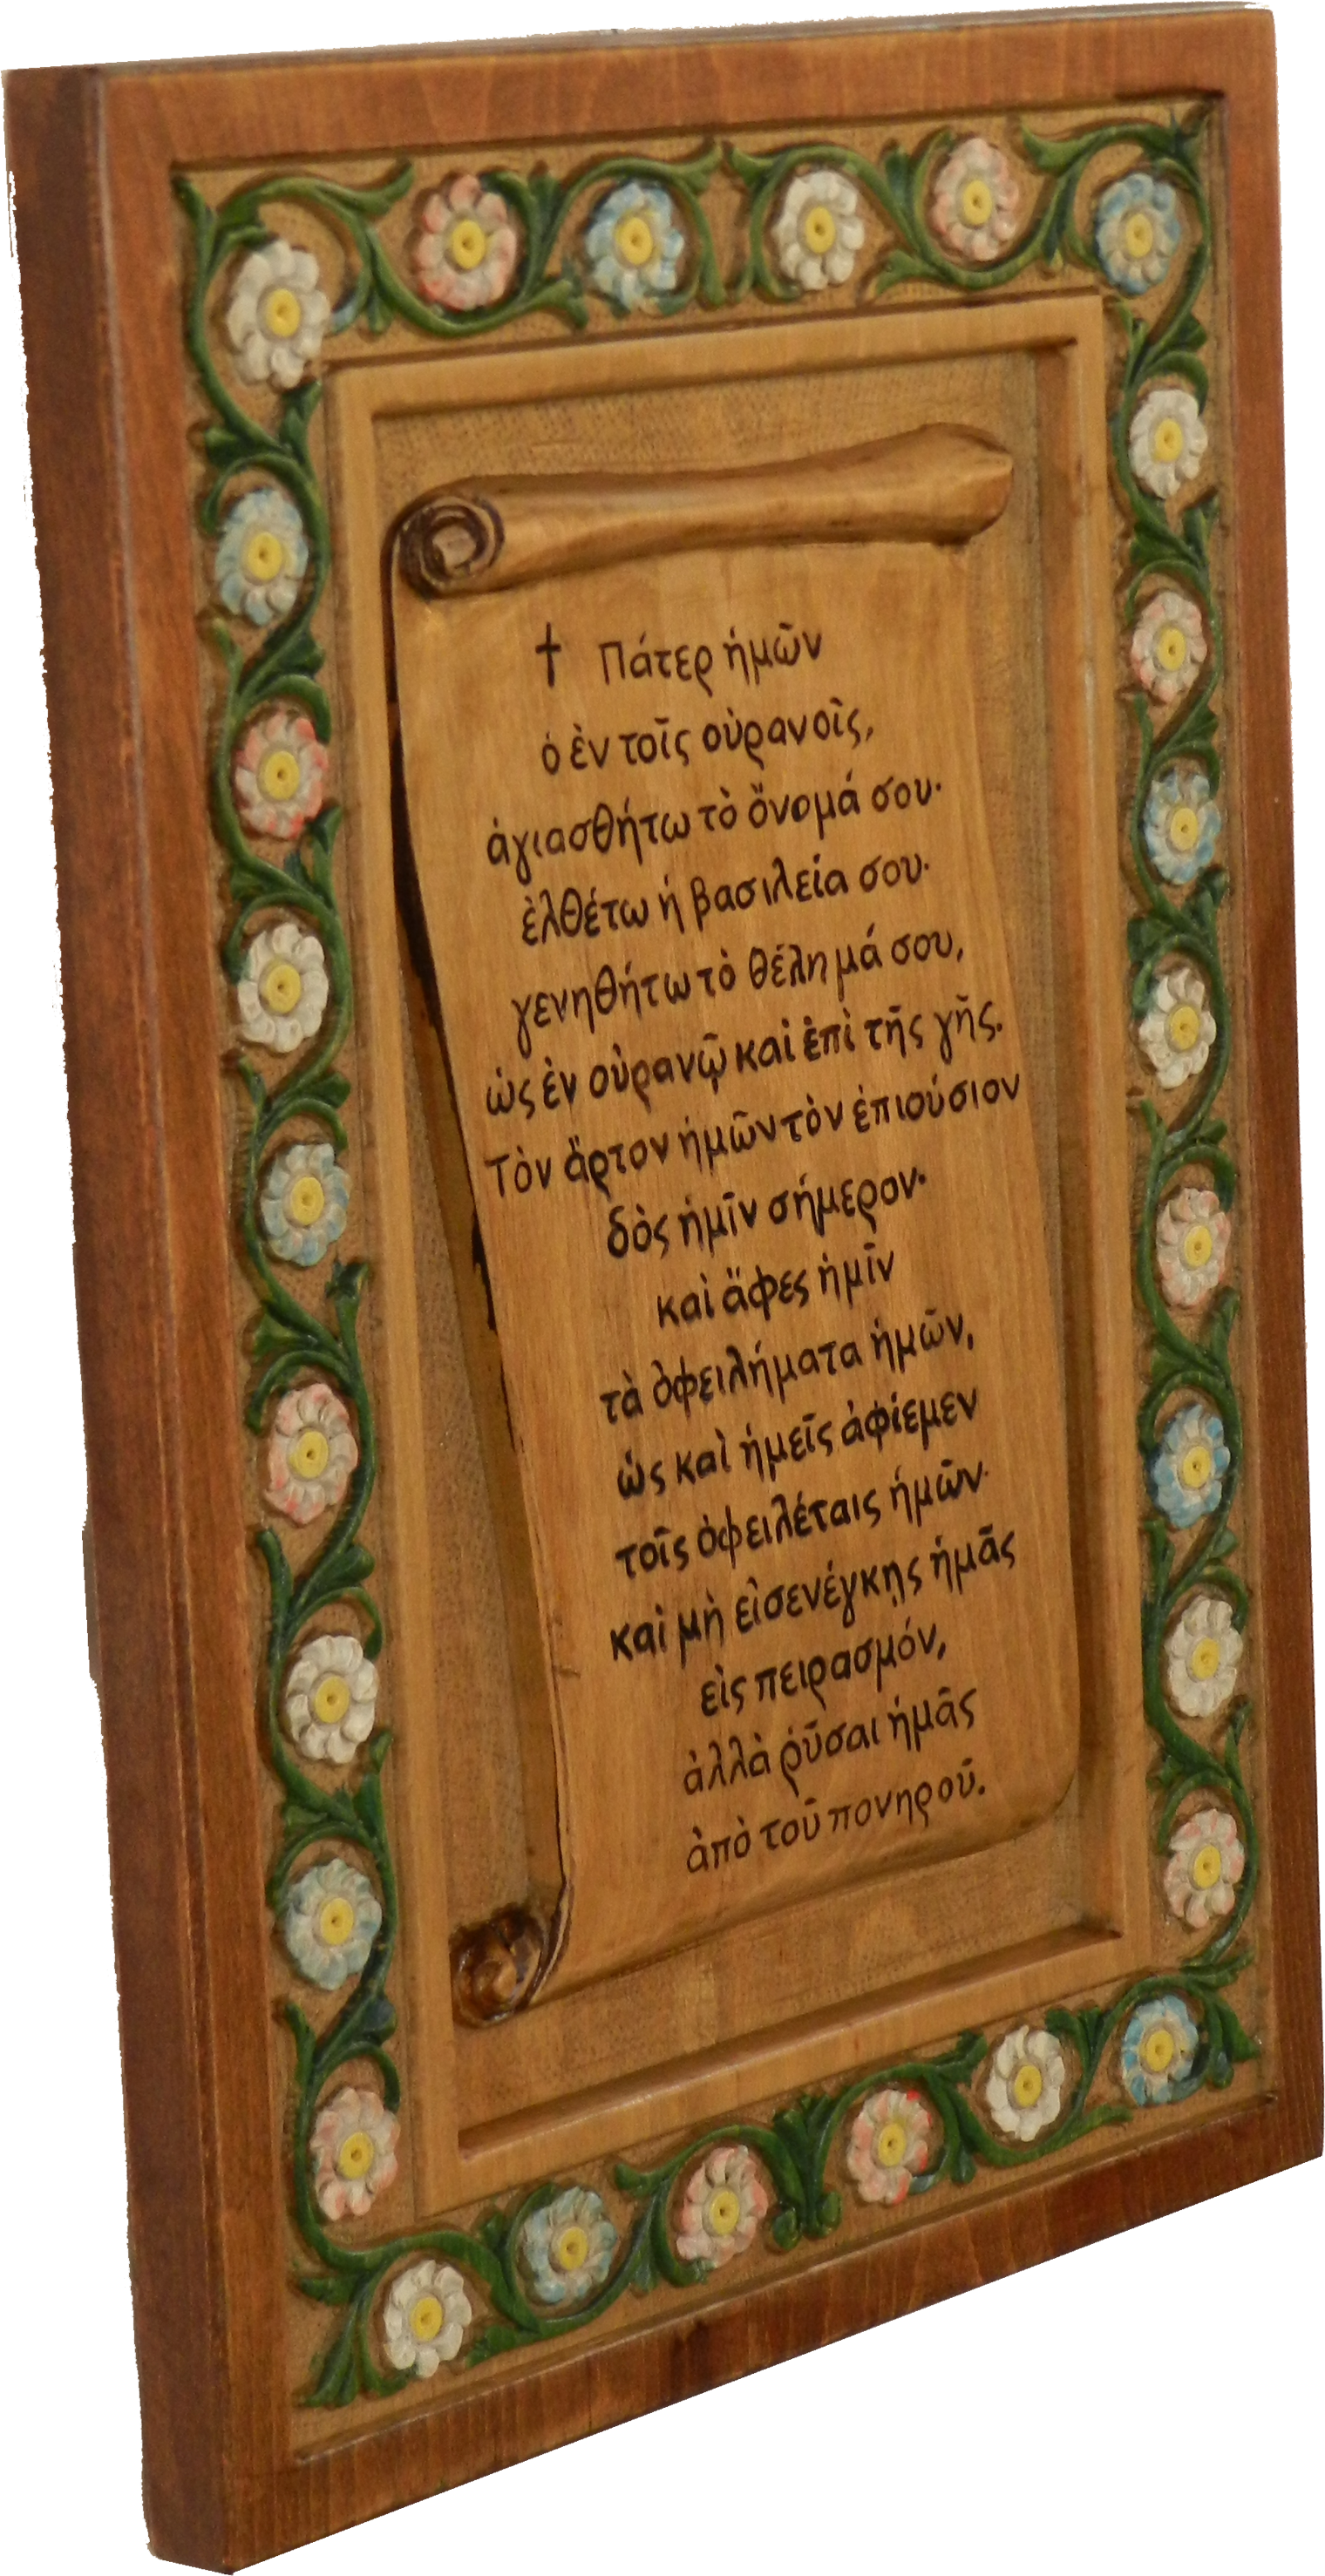 † Πάτερ ἡμῶν
ὁ ἐν τοῖς οὐρανοῖς,
ἁγιασθήτω τὸ ὄνομά σου·
ἐλθέτω ἡ βασιλεία σου·
γενηθήτω τὸ θέλημά σου,
ὡς ἐν οὐρανῷ καὶ ἐπὶ τῆς γῆς.
Τὸν ἄρτον ἡμῶν τὸν ἐπιούσιον
δὸς ἡμῖν σήμερον·
καὶ ἄφες ἡμῖν
τὰ ὀφειλήματα ἡμῶν,
ὡς καὶ ἡμεῖς ἀφίεμεν
τοῖς ὀφειλέταις ἡμῶν·
καὶ μὴ εἰσενέγκῃς ἡμᾶς
εἰς πειρασμόν,
ἀλλὰ ῥῦσαι ἡμᾶς
ἀπὸ τοῦ πονηροῦ.